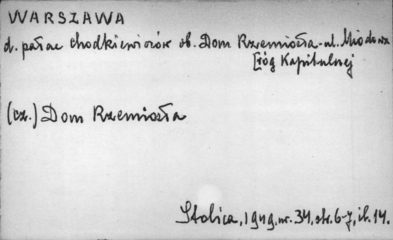 WARSZAWA
d. pałac Chodkiewiczów ob. Dom Rzemiosła - ul. Miodowa
[róg Kapitulnej
(cz.) Dom Rzemiosła
Stolica, 1949, nr. 34, str. 6-7, il. 14.